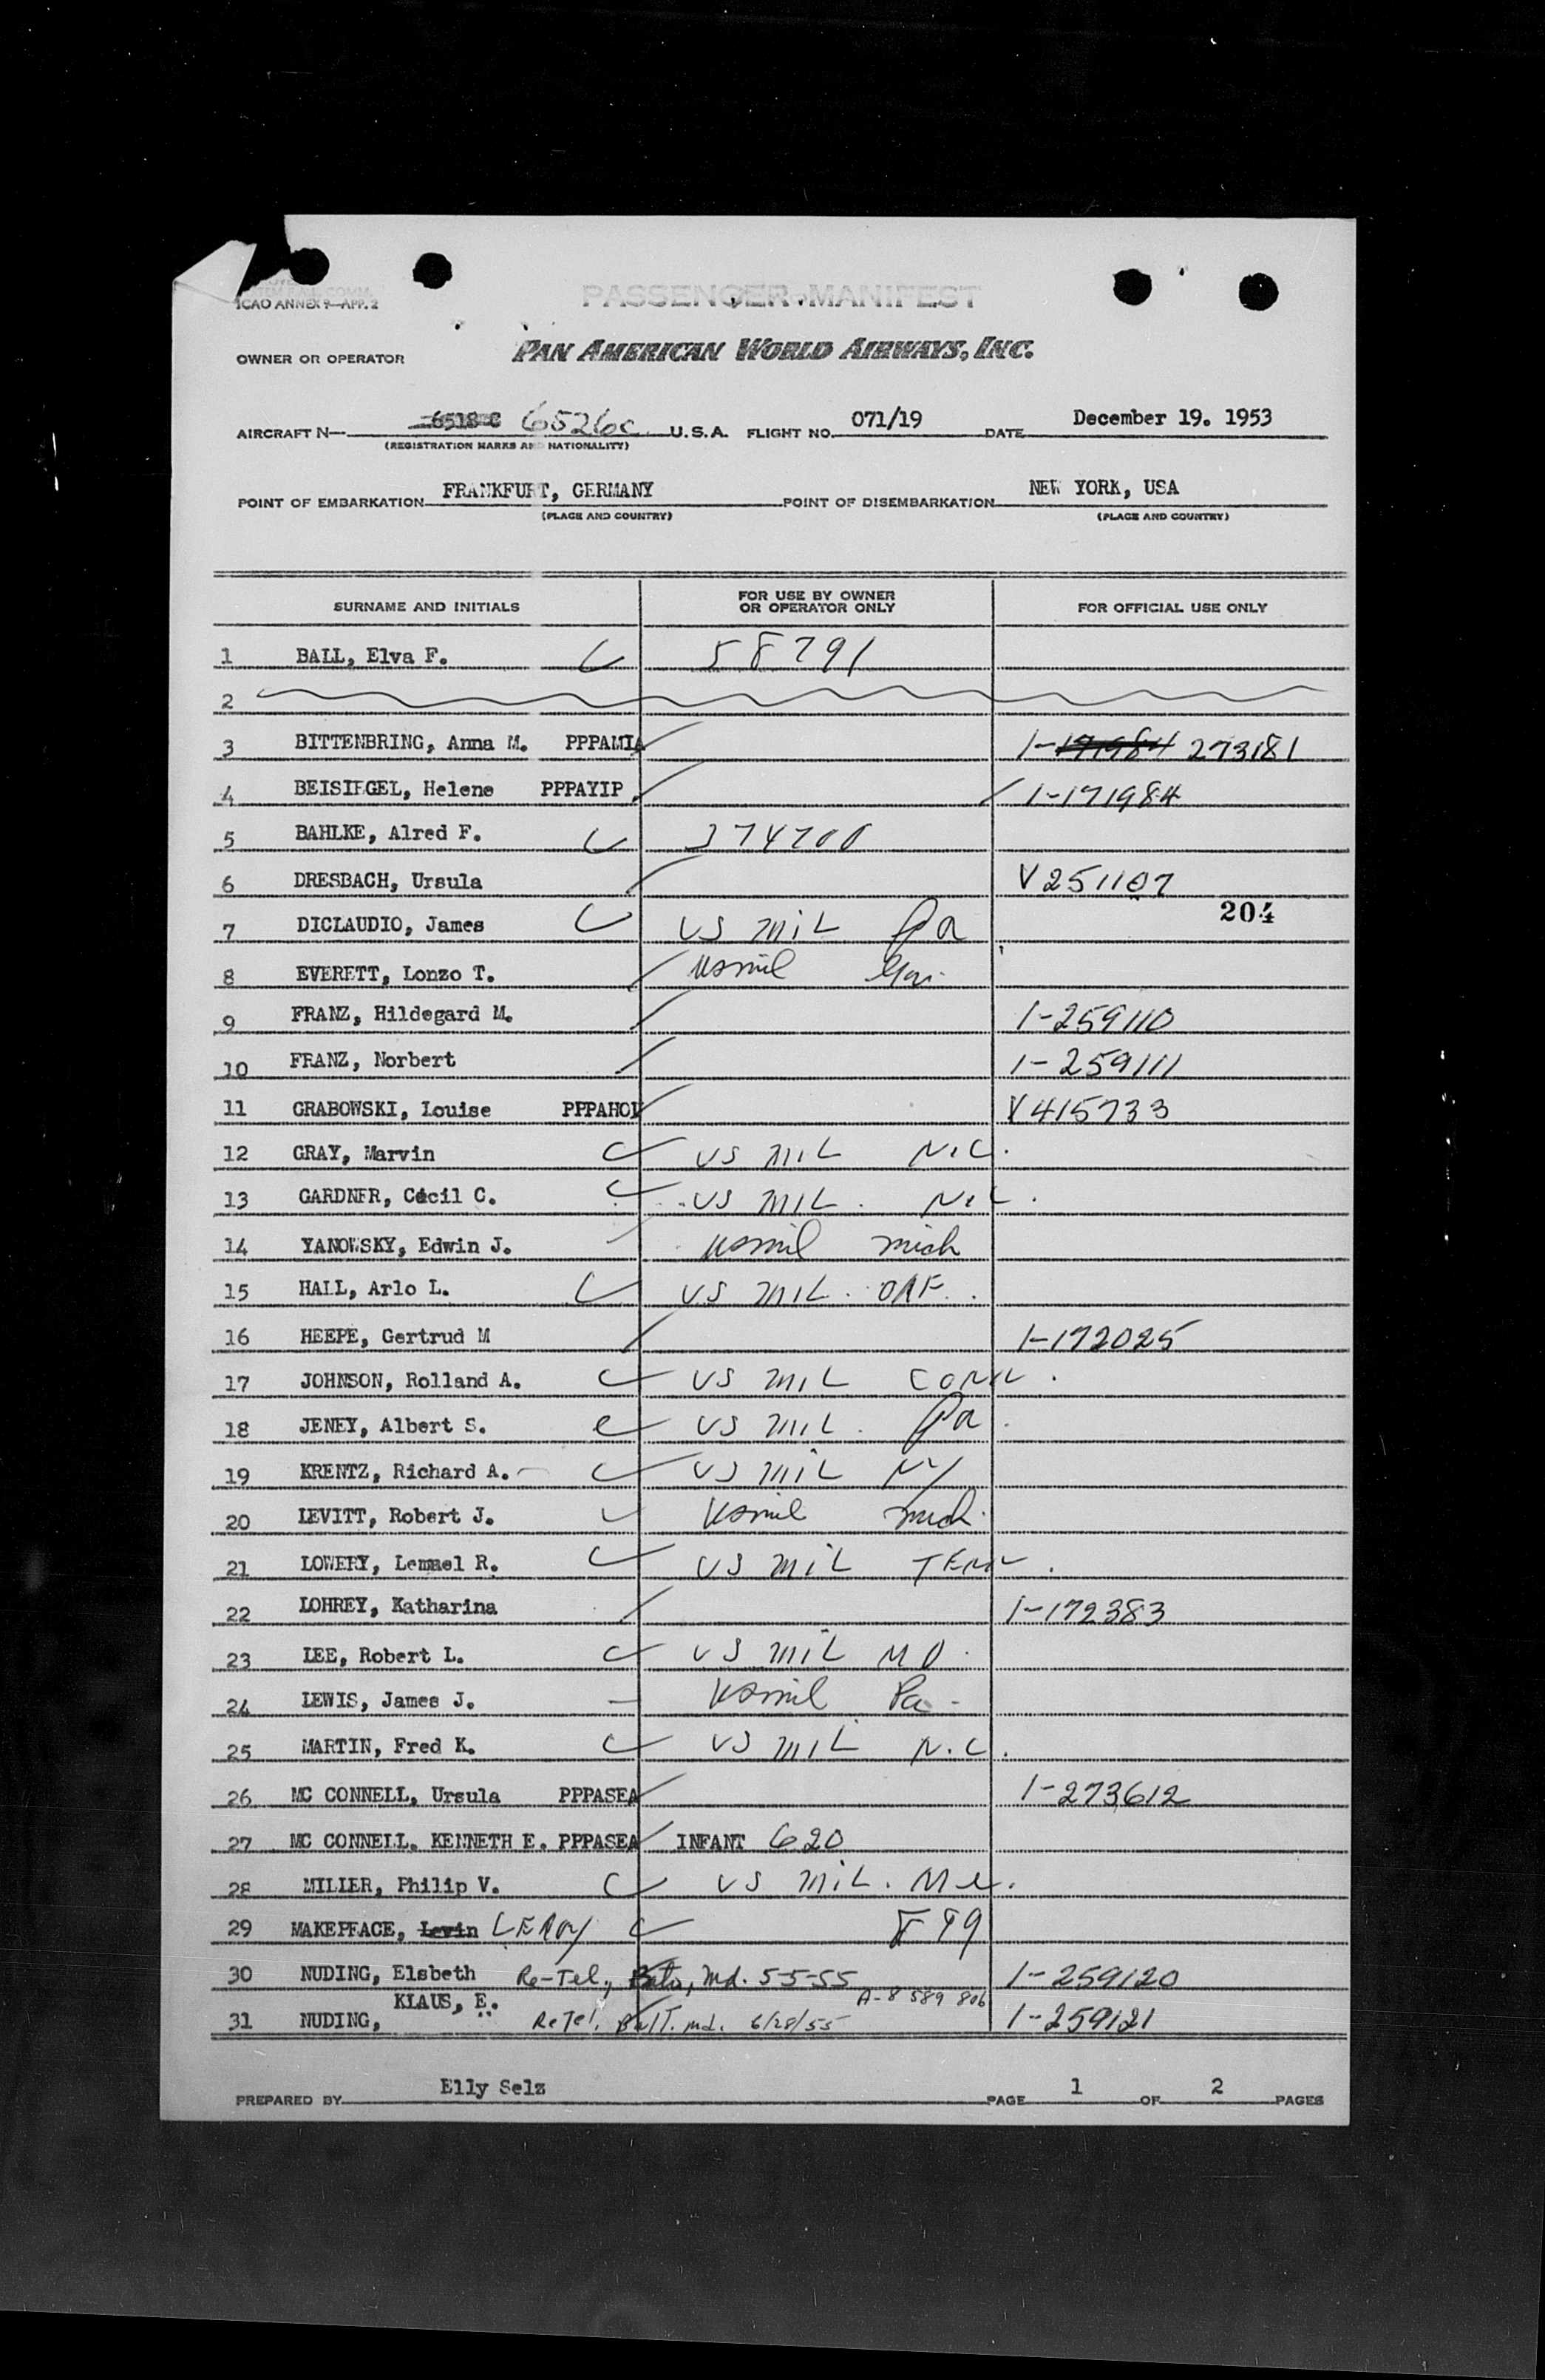 ICAO ANNEX 9—APP. 2
PASSENGER MANIFEST
OWNER OR OPERATOR PAN AMERICAN WORLD AIRWAYS, INC.
AIRCRAFT N— 6518 C 6526c U.S.A. FLIGHT NO. 071/19 DATE December 19. 1953
(REGISTRATION MARKS AND NATIONALITY)
POINT OF EMBARKATION FRANKFURT, GERMANY POINT OF DISEMBARKATION NEW YORK, USA
(PLACE AND COUNTRY) (PLACE AND COUNTRY)
SURNAME AND INITIALS FOR USE BY OWNER OR OPERATOR ONLY FOR OFFICIAL USE ONLY
1 BALL, Elva F. 58791
2
3 BITTENBRING, Anna M. PPPAMIA 1-171984 273181
4 BEISIEGEL, Helene PPPAYIP 1-171984
5 BAHLKE, Alred F. 374700
6 DRESBACH, Ursula V251107
204
7 DICLAUDIO, James US MIL Pa
8 EVERETT, Lonzo T. US mil
9 FRANZ, Hildegard M. 1-259110
10 FRANZ, Norbert 1-259111
11 GRABOWSKI, Louise PPPAHOU V415733
12 GRAY, Marvin US MIL N.C.
13 GARDNER, Cecil C. US MIL. N.C.
14 YANOWSKY, Edwin J. US mil mich
15 HALL, Arlo L. US MIL. ORE.
16 HEEPE, Gertrud M 1-172025
17 JOHNSON, Rolland A. US MIL CONN.
18 JENEY, Albert S. US MIL. Pa.
19 KRENTZ, Richard A. US MIL NY
20 LEVITT, Robert J. US mil mich.
21 LOWERY, Lemmel R. US MIL TENN.
22 LOHREY, Katharina 1-172383
23 LEE, Robert L. US MIL MO.
24 LEWIS, James J. US mil Pa -
25 MARTIN, Fred K. US MIL N.C.
26 MC CONNELL, Ursula PPPASEA 1-273612
27 MC CONNELL, KENNETH E. PPPASEA INFANT 620
28 MILLER, Philip V. US MIL. Me.
29 MAKEPEACE, Levin LEROY 899
30 NUDING, Elsbeth Re-Tel., Balto, Md. 5-5-55 1-259120
A-8 589 806
31 NUDING, KLAUS, E. Re Tel. Balt. md. 6/28/55 1-259121
PREPARED BY Elly Selz PAGE 1 OF 2 PAGES